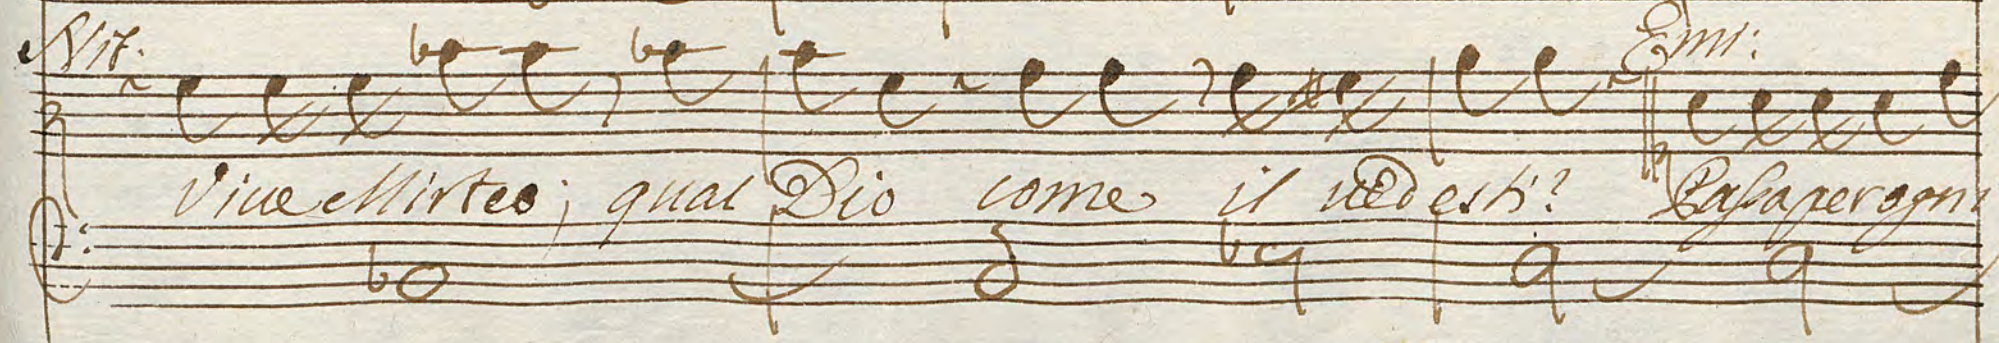 Nit: Emi:
Vive Mirteo; qual Dio come il vedesti? Passa per ogni